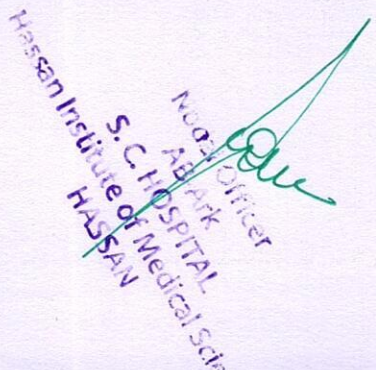 Nodal Officer
AB Ark
S. C. HOSPITAL
Hassan Institute of Medical Scie
HASSAN